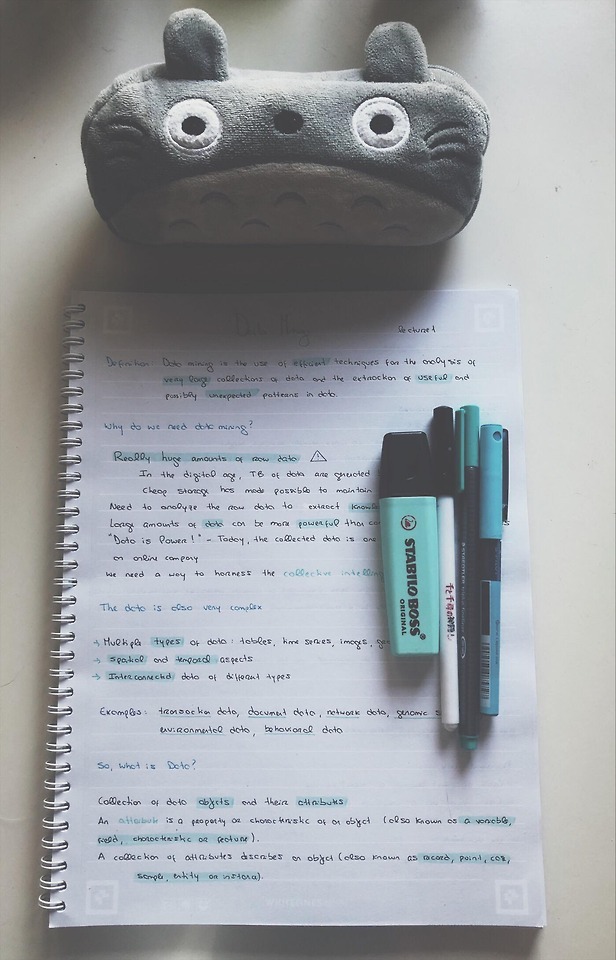 Data Mining
Lecture 1
Definition: Data mining is the use of efficient techniques for the analysis of
very large collections of data and the extraction of useful and
possibly unexpected patterns in data.
Why do we need data mining?
Really huge amounts of raw data
In the digital age, TB of data are generated
Cheap storage has made possible to maintain
Need to analyze the raw data to extract
Large amounts of data can be more powerful than
"Data is Power!" - Today, the collected data is one
an online company
We need a way to harness the collective
The data is also very complex
→ Multiple types of data: tables, time series, images,
→ spatial and temporal aspects
→ Interconnected data of different types
Examples: transaction data, document data, network data, genomic
environmental data, behavioral data
So, what is Data?
Collection of data objects and their attributes
An attribute is a property or characteristic of an object (also known as a variable,
field, characteristic or feature).
A collection of attributes describes an object (also known as record, point, case,
sample, entity or instance).
STABILO BOSS
ORIGINAL